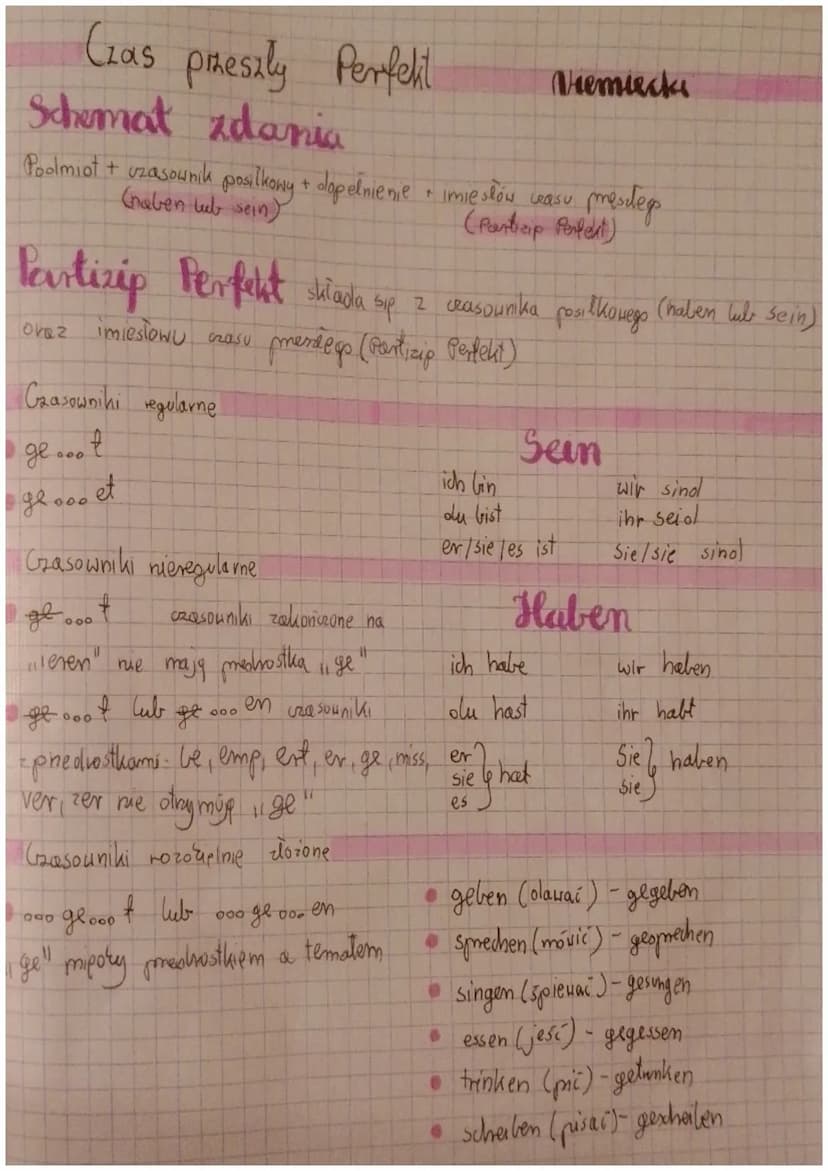 Czas przeszły Perfekt
Niemiecki
Schemat zdania
Podmiot + czasownik posiłkowy + dopełnienie + imiesłów czasu przeszłego
(haben lub sein)
(Partizip Perfekt)
Partizip Perfekt składa się z czasownika posiłkowego (haben lub sein)
oraz imiesłowu czasu przeszłego (Partizip Perfekt)
Czasowniki regularne
ge...t
ge...et
Czasowniki nieregularne
ge...t czasowniki zakończone na
„ieren" nie mają przedrostka „ge"
ge...t lub ge...en czasowniki
z przedrostkami- be, emp, ent, er, ge, miss,
ver, zer nie otrzymują „ge"
Czasowniki rozdzielnie złożone
...ge...t lub ...ge...en
„ge" między przedrostkiem a tematem
Sein
ich bin wir sind
du bist ihr seid
er/sie/es ist Sie/sie sind
Haben
ich habe wir haben
du hast ihr habt
er
sie hat
es
Sie haben
sie
geben (dawać) - gegeben
sprechen (mówić) - gesprechen
singen (śpiewać) - gesungen
essen (jeść) - gegessen
trinken (pić) - getrunken
scheiben (pisać) - gescheiben